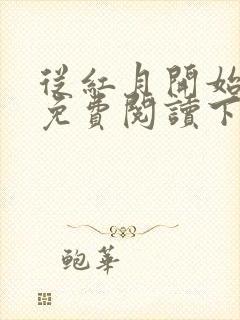 從紅月開始
免費閱讀下
鮑華